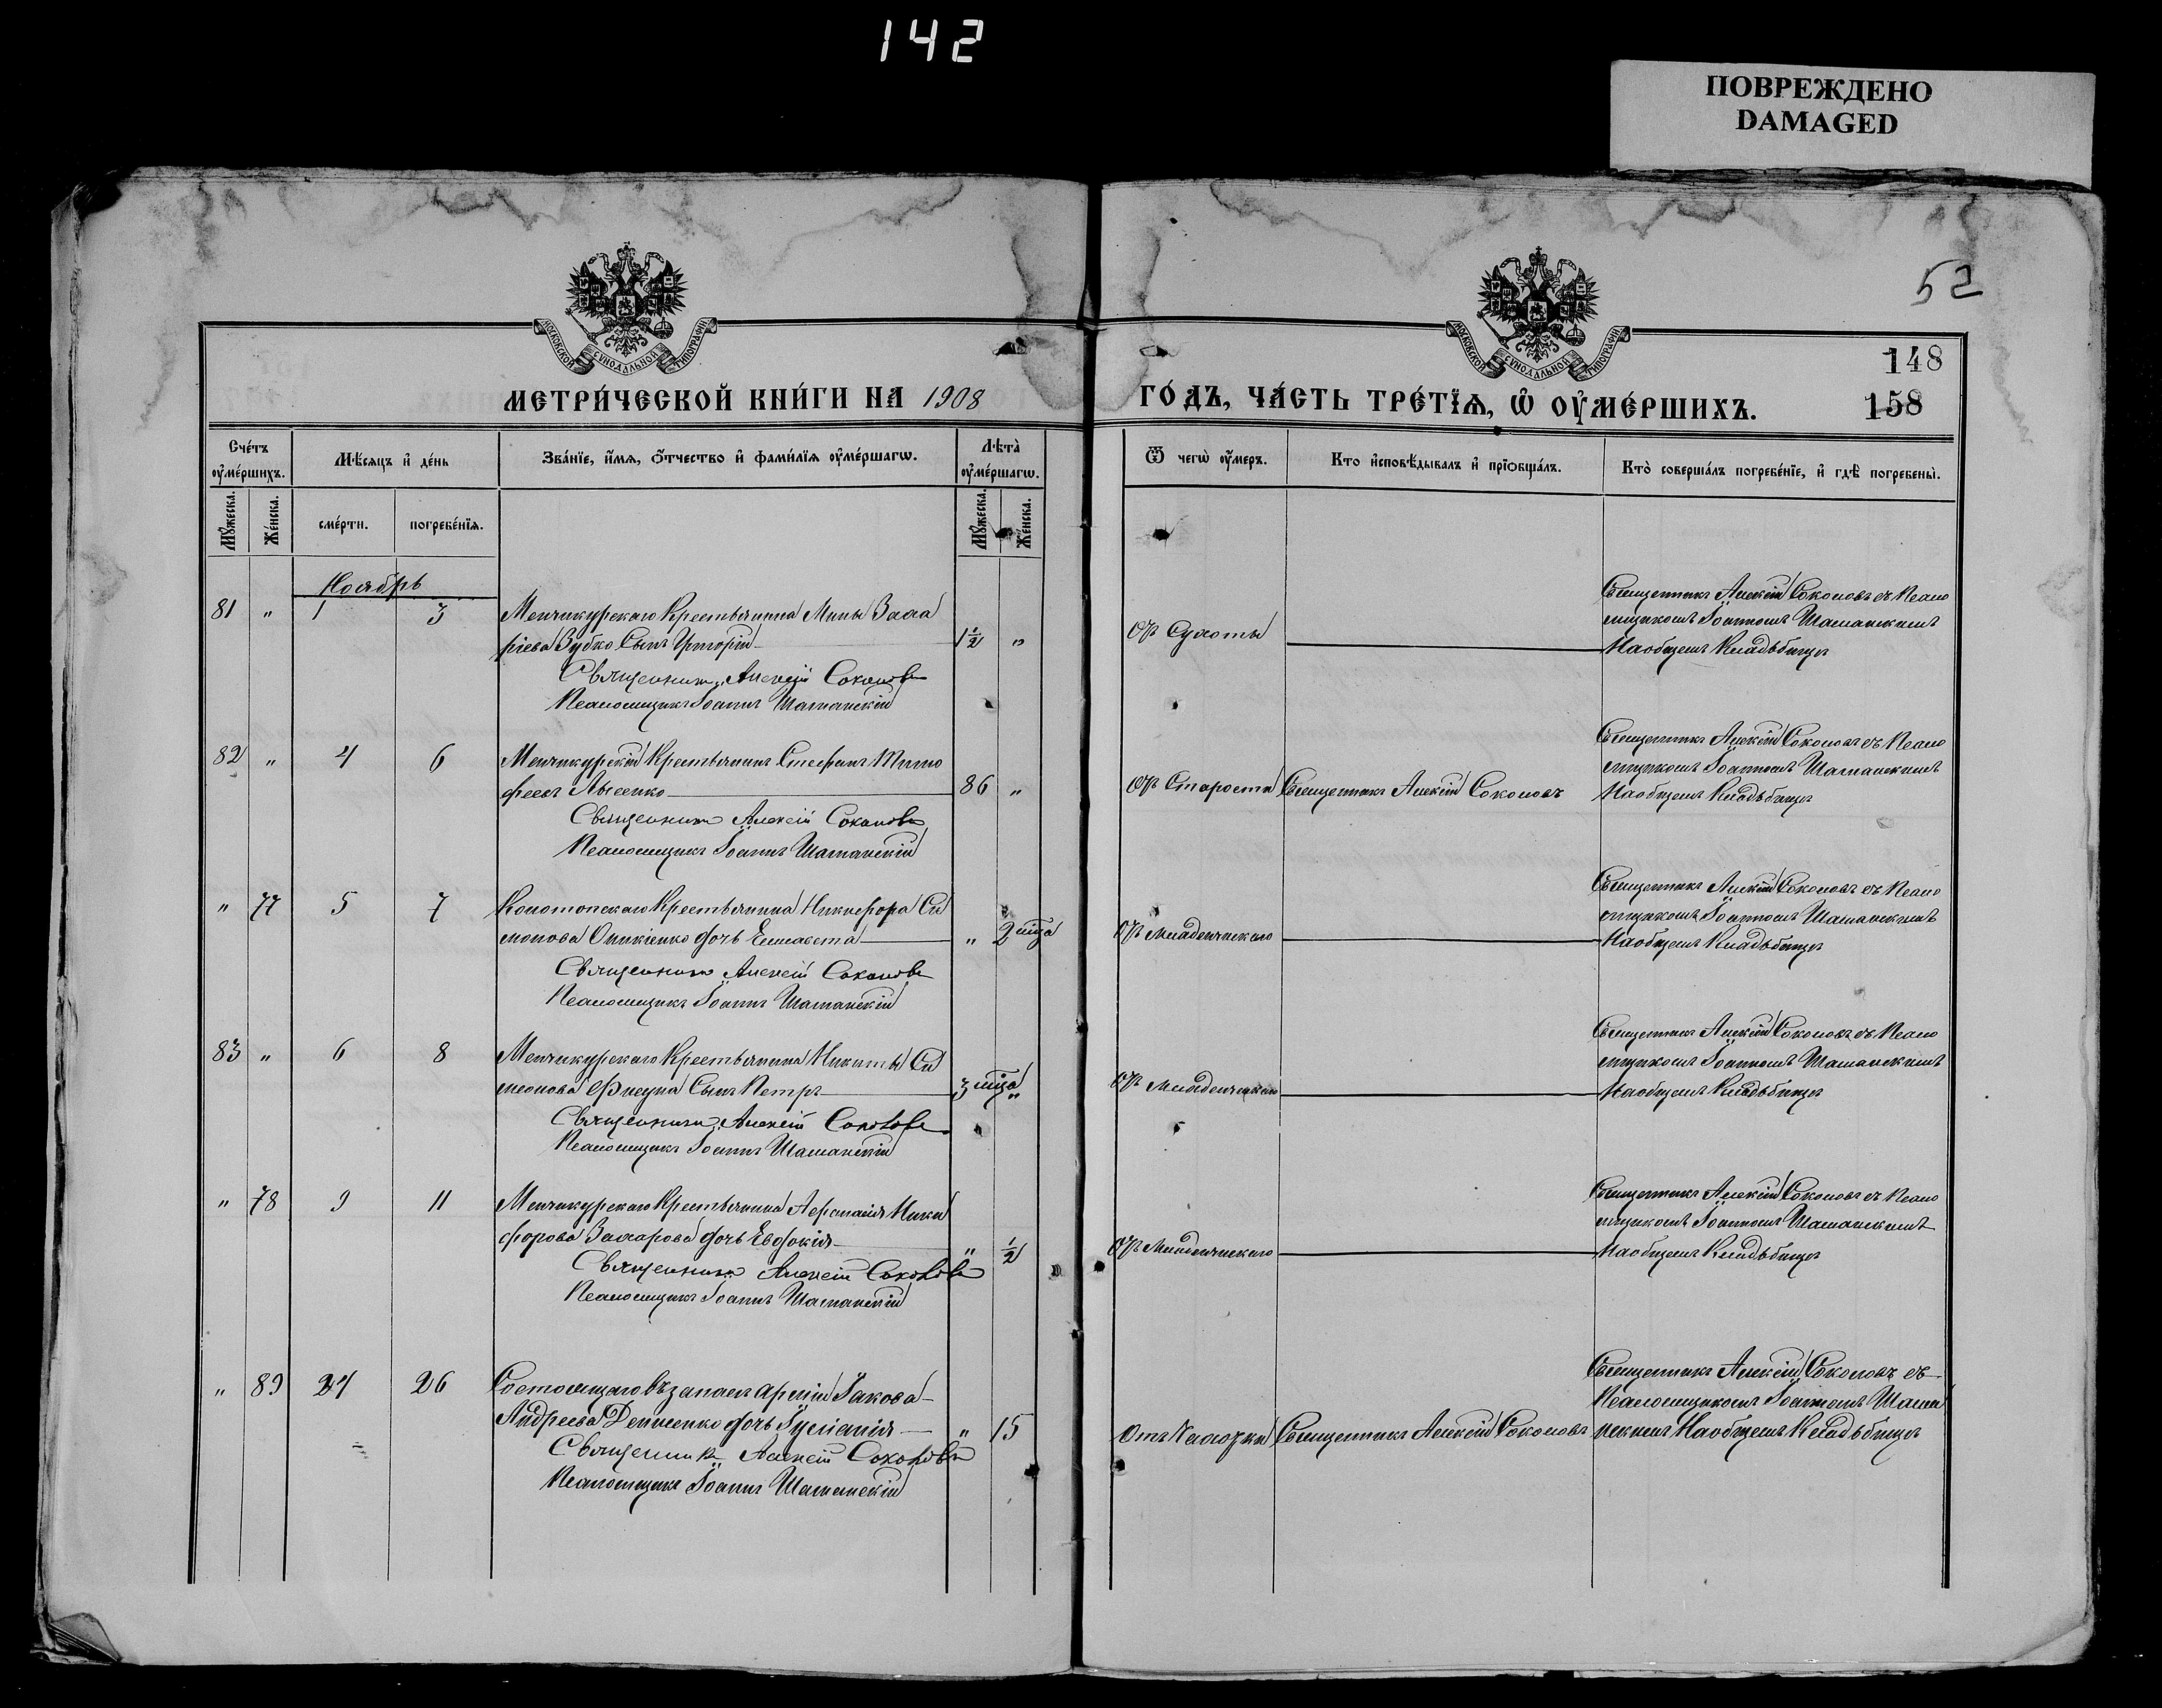 142
ПОВРЕЖДЕНО
DAMAGED
52
МОСКОВСКОЙ СѴНОДАЛЬНОЙ ТИПОГРАФІИ
МОСКОВСКОЙ СѴНОДАЛЬНОЙ ТИПОГРАФІИ
148
МЕТРИ́ЧЕСКОЙ КНИ́ГИ НА 1908
ГО́ДЪ, ЧА́СТЬ ТРЕ́ТЇѦ, Ѡ҆ ОУ҆МЕ́РШИХЪ.
158
Сче́тъ оу҆ме́ршихъ.
Мѣ́сѧцъ и҆ де́нь
Зва́нїе, и҆́мѧ, ѻ҆́тчество и҆ фами́лїѧ оу҆ме́ршагѡ.
Лѣ́та оу҆ме́ршагѡ.
Ѿ чегѡ̀ оу҆́меръ.
Кто̀ и҆сповѣ́дывалъ и҆ прїѡбща́лъ.
Кто̀ соверша́лъ погребе́нїе, и҆ гдѣ̀ погребены̀.
Мꙋ́жеска.
Же́нска.
сме́рти.
погребе́нїѧ.
Мꙋ́жеска.
Же́нска.
Ноябрь
81 " 1 3 Менчикурскаго Крестьянина Мины Заха
ріева Зубко Сынъ Григорій 1½ "
Священникъ Алексій Соколовъ
Псаломщикъ Іоаннъ Шаманскій
Отъ Сухоты
Священникъ Алексій Соколовъ съ Псало
мщикомъ Іоанномъ Шаманскимъ
На общемъ Кладьбищѣ
82 " 4 6 Менчикурскій Крестьянинъ Стефанъ Тимо
феевъ Лысенко 86 "
Священникъ Алексій Соколовъ
Псаломщикъ Іоаннъ Шаманскій
Отъ Старости Священникъ Алексій Соколовъ
Священникъ Алексій Соколовъ съ Псало
мщикомъ Іоанномъ Шаманскимъ
На общемъ Кладьбищѣ
" 77 5 7 Конотопскаго Крестьянина Никифора Си
монова Оникіенко дочь Елисавета " 2 мѣца
Священникъ Алексій Соколовъ
Псаломщикъ Іоаннъ Шаманскій
Отъ Младенческаго
Священникъ Алексій Соколовъ съ Псало
мщикомъ Іоанномъ Шаманскимъ
На общемъ Кладьбищѣ
83 " 6 8 Менчикурскаго Крестьянина Никиты Си
меонова Сынъ Петръ 3 мѣца "
Священникъ Алексій Соколовъ
Псаломщикъ Іоаннъ Шаманскій
Отъ Младенческаго
Священникъ Алексій Соколовъ съ Псало
мщикомъ Іоанномъ Шаманскимъ
На общемъ Кладьбищѣ
" 78 9 11 Менчикурскаго Крестьянина Афанасія Ники
форова Захарова дочь Евдокія " ½
Священникъ Алексій Соколовъ
Псаломщикъ Іоаннъ Шаманскій
Отъ Младенческаго
Священникъ Алексій Соколовъ съ Псало
мщикомъ Іоанномъ Шаманскимъ
На общемъ Кладьбищѣ
" 89 24 26 Состоящаго въ запасѣ арміи Іакова
Андреева Денисенко дочь Іуліанія " 15
Священникъ Алексій Соколовъ
Псаломщикъ Іоаннъ Шаманскій
Отъ Чахотки Священникъ Алексій Соколовъ
Священникъ Алексій Соколовъ съ
Псаломщикомъ Іоанномъ Шама
нскимъ На общемъ Кладьбищѣ